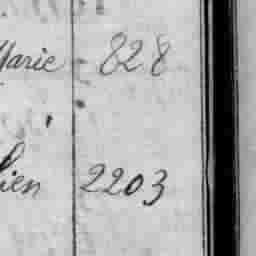 Marie 828
lien 2203